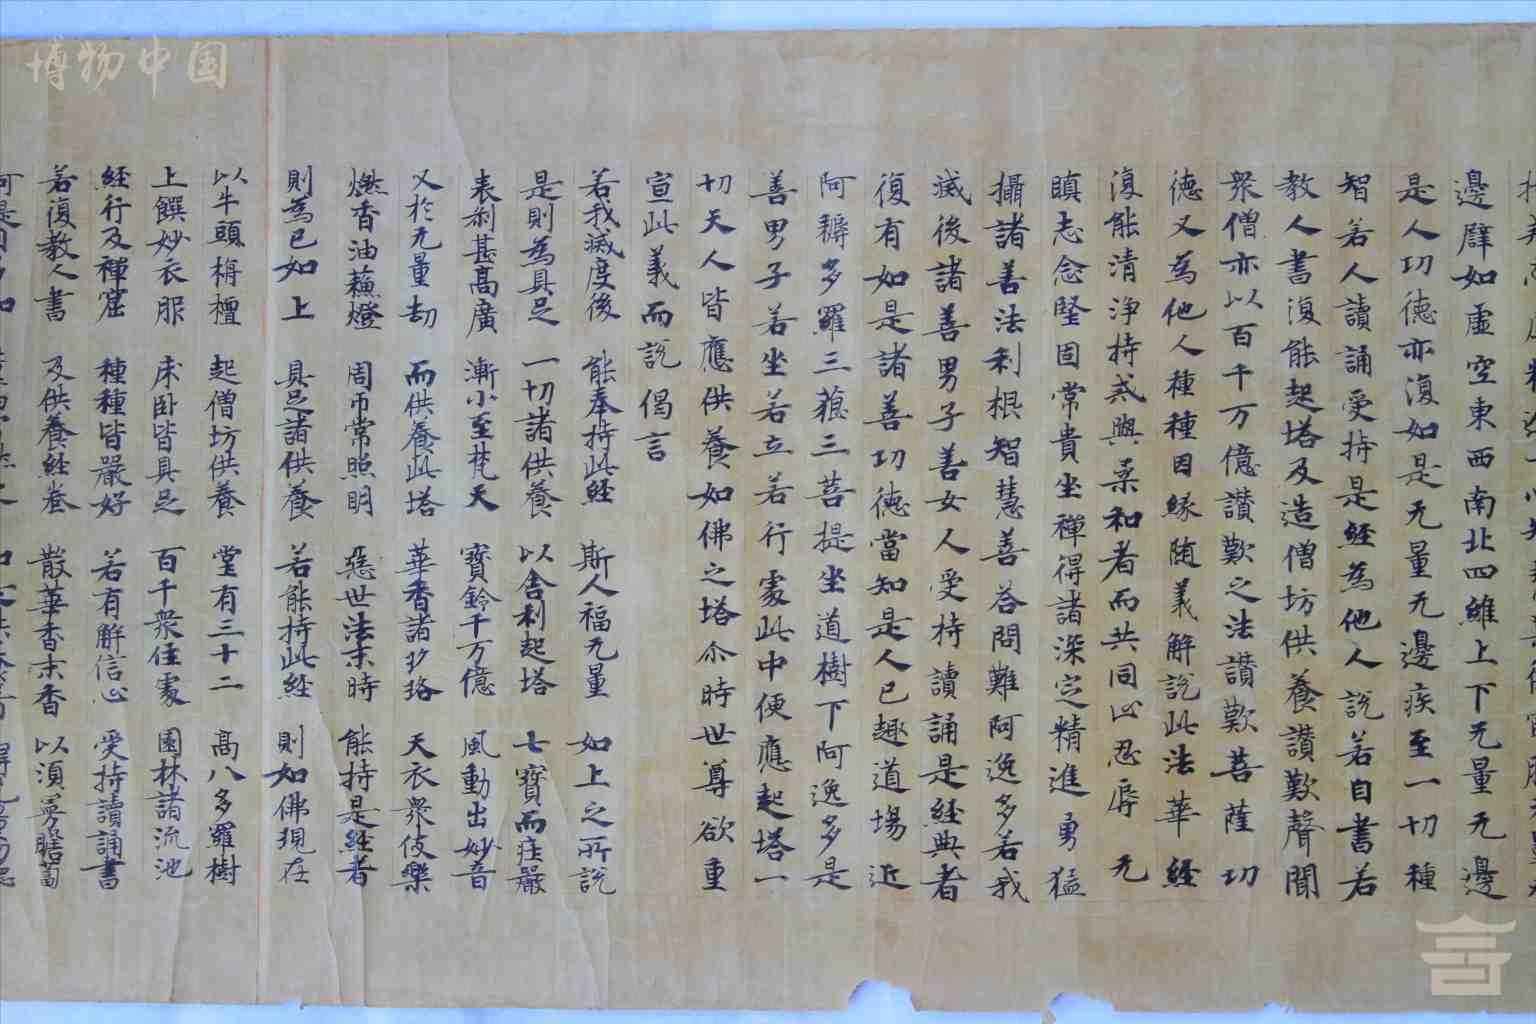 邊辟如虛空東西南北四維上下无量无邊
是人功德亦復如是无量无邊疾至一切種
智若人讀誦受持是經為他人說若自書若
教人書復能起塔及造僧坊供養讚歎聲聞
衆僧亦以百千万億讚歎之法讚歎菩薩功
德又為他人種種因緣随義解說此法華經
復能清淨持戒與柔和者而共同止忍辱无
瞋志念堅固常貴坐禪得諸深㝎精進勇猛
攝諸善法利根智慧善荅問難阿逸多若我
滅後諸善男子善女人受持讀誦是經典者
復有如是諸善功德當知是人已趣道場近
阿耨多羅三藐三菩提坐道樹下阿逸多是
善男子若坐若立若行處此中便應起塔一
切天人皆應供養如佛之塔尒時世尊欲重
宣此義而說偈言
若我滅度後 能奉持此經 斯人福无量 如上之所說
是則為具足 一切諸供養 以舍利起塔 七寶而莊嚴
表刹甚高廣 漸小至梵天 寶鈴千万億 風動出妙音
又於无量劫 而供養此塔 華香諸瓔珞 天衣衆伎樂
燃香油蘇燈 周帀常照明 惡世法末時 能持是經者
則為已如上 具足諸供養 若能持此經 則如佛現在
以牛頭栴檀 起僧坊供養 堂有三十二 高八多羅樹
上饌妙衣服 床卧皆具足 百千衆住處 園林諸流池
經行及禪窟 種種皆嚴好 若有解信心 受持讀誦書
若復教人書 及供養經卷 散華香末香 以須曼瞻蔔
博物中国